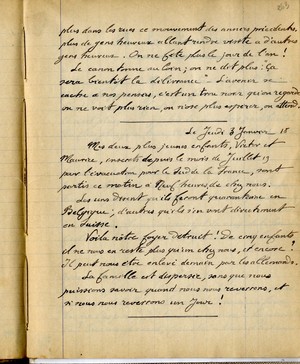 plus dans les rues ce mouvement des années précédentes,
plus de gens heureux allant rendre visite à d'autres
gens heureux. On ne fête plus le jour de l'an !
Le canon tonne au loin ; on ne dit plus : ça
sera bientôt la délivrance ! L'avenir se
cache à nos pensées, c'est un trou noir qu'on regarde
on ne voit plus rien, on n'ose plus espérer, on attend.
Le Jeudi 3 Janvier 18
Mes deux plus jeunes enfants, Victor et
Maurice, inscrits depuis le mois de Juillet 17
pour l'évacuation pour le Sud de la France, sont
partis ce matin à Neuf heures, de chez nous.
Les uns disent qu'ils feront quarantaine en
Belgique ; d'autres qu'ils s'en vont directement
en Suisse.
Voilà nôtre foyer détruit ! De cinq enfants
il ne nous en reste plus qu'un chez nous, et encore !
Il peut nous être enlevé demain par les allemands.
La famille est dispersée, sans que nous
puissions savoir quand nous nous reverrons, et
si nous nous reverrons un Jour !